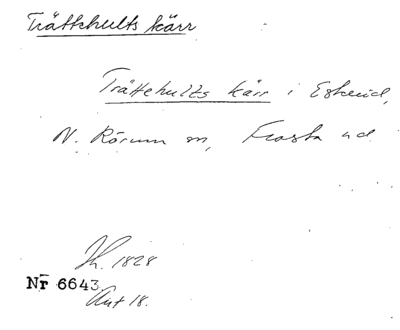 Trättehults kärr
Trättehults kärr i Eskeröd,
N. Rörum sn, Frosta hd
Jh. 1828
Nr 6643
Akt 18.